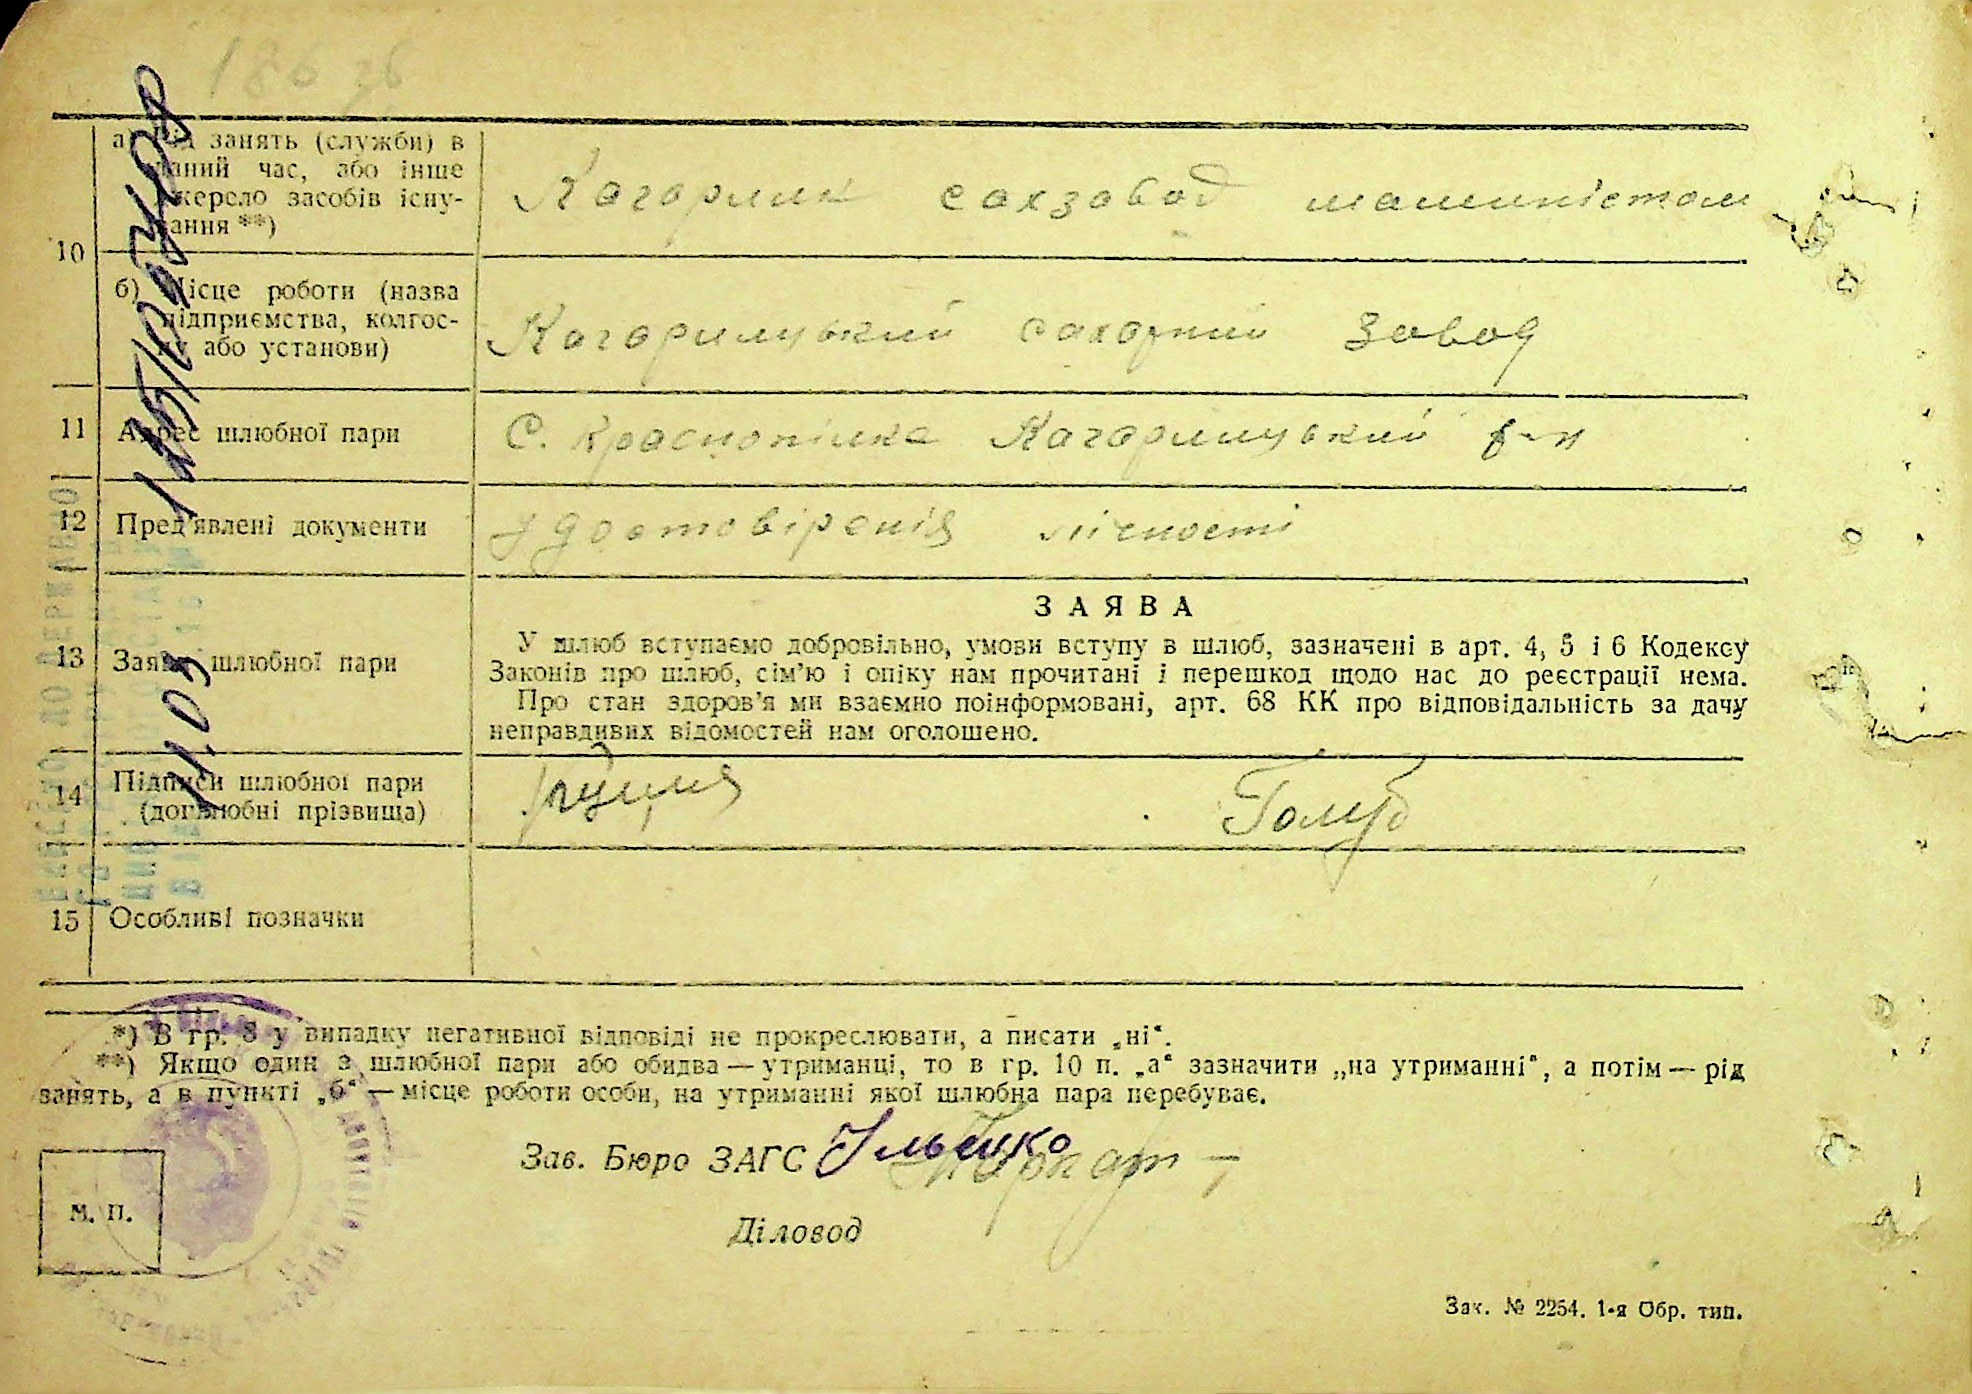 186 зв
а) Рід занять (служби) в
даний час, або інше
джерело засобів існу-
вання **)
Кагарлик сахзавод машиністом
10
б) Місце роботи (назва
підприємства, колгос-
пу або установи)
Кагарлицький сахарний завод
11 Адрес шлюбної пари
С. Краснопілка Кагарлицький р-н
12 Пред'явлені документи
удостовіренія лічності
13 Заява шлюбної пари
ЗАЯВА
У шлюб вступаємо добровільно, умови вступу в шлюб, зазначені в арт. 4, 5 і 6 Кодексу
Законів про шлюб, сім'ю і опіку нам прочитані і перешкод щодо нас до реєстрації нема.
Про стан здоров'я ми взаємно поінформовані, арт. 68 КК про відповідальність за дачу
неправдивих відомостей нам оголошено.
14 Підписи шлюбної пари
(дошлюбні прізвища)
Голуб
15 Особливі позначки
*) В гр. 8 у випадку негативної відповіді не прокреслювати, а писати „ні“.
**) Якщо один з шлюбної пари або обидва — утриманці, то в гр. 10 п. „а“ зазначити „на утриманні“, а потім — рід
занять, а в пункті „б“ — місце роботи особи, на утриманні якої шлюбна пара перебуває.
Зав. Бюро ЗАГС Ільєнко
Діловод
М. П.
Зак. № 2254. 1-я Обр. тип.